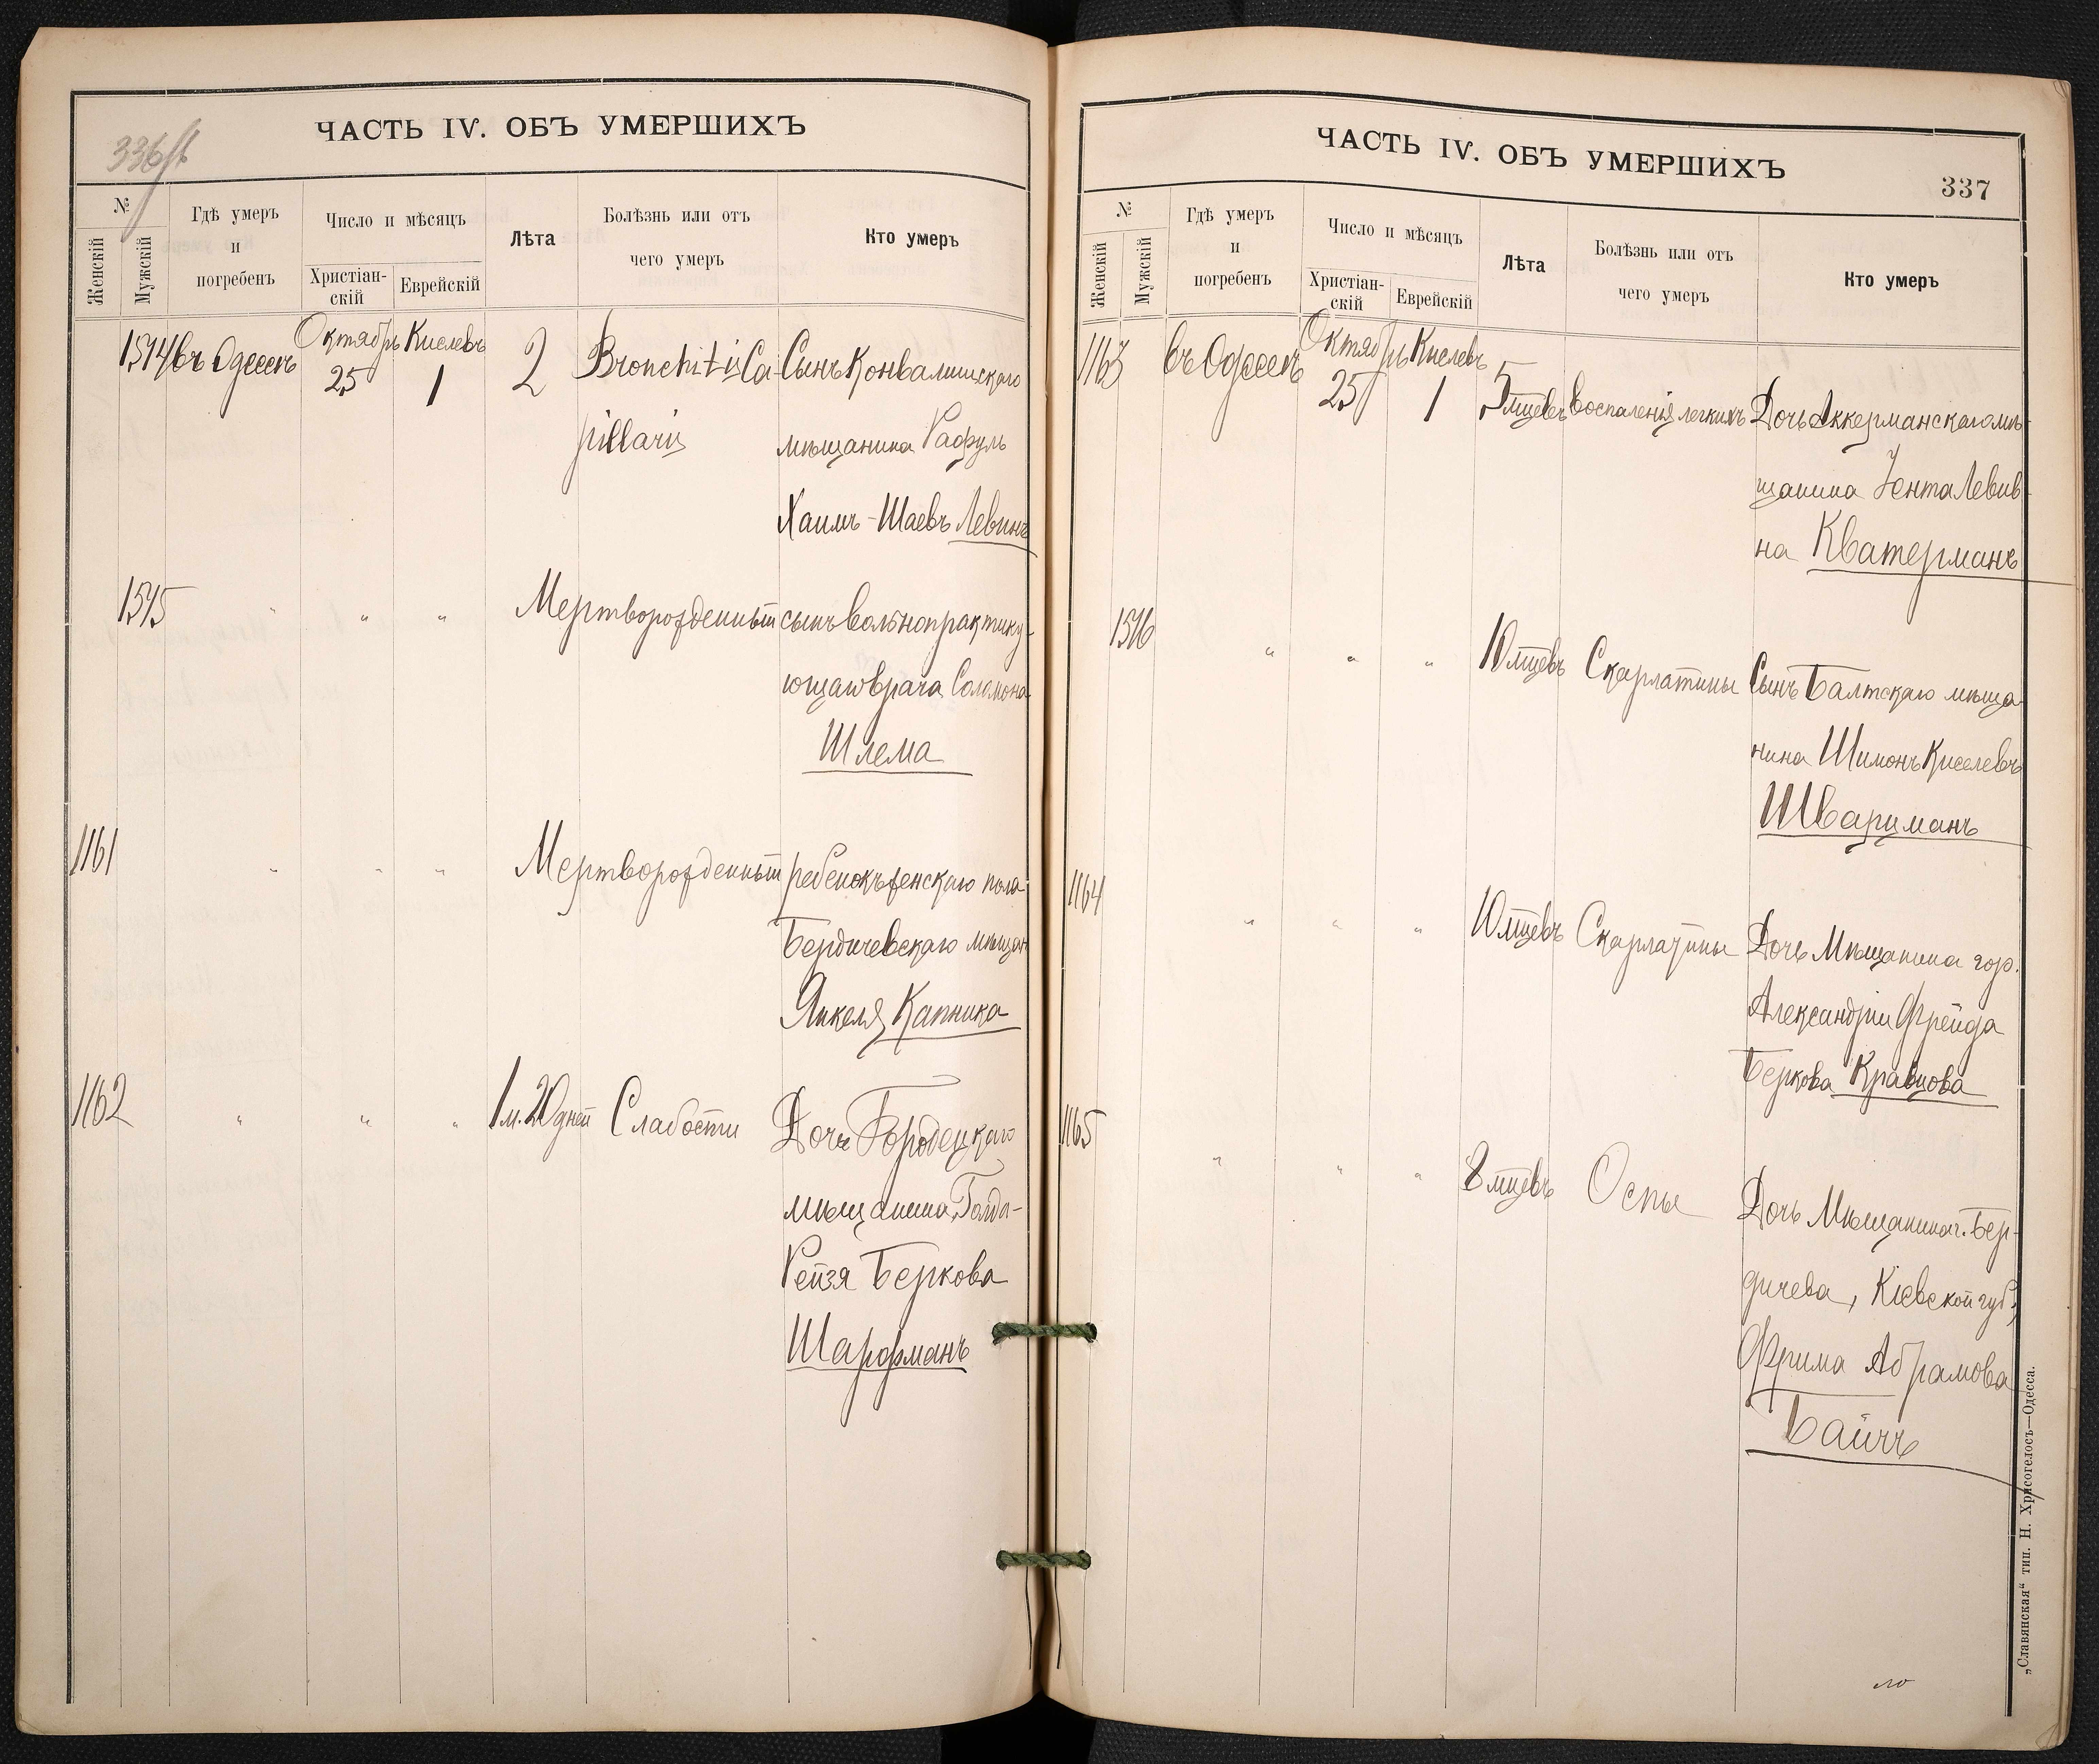 336 об
ЧАСТЬ IV. ОБЪ УМЕРШИХЪ
№
Женскій
Мужскій
Гдѣ умеръ
и
погребенъ
Число и мѣсяцъ
Христіан-
скій
Еврейскій
Лѣта
Болѣзнь или отъ
чего умеръ
Кто умеръ
1574 въ Одессѣ Октябрь 25 Кислевъ 1 2 Bronchitis Ca- Сынъ Конвалишскаго
pillaris мѣщанина Рафуль
Хаимъ-Шаевъ Левинъ
1575 " " " Мертворожденный сынъ вольнопрактику-
ющаго врача Соломона
Шлема
1161 " " " Мертворожденный ребенокъ женскаго пола
Бердичевскаго мѣщан.
Янкеля Капника
1162 " " " 1 м. 20 дней Слабости Дочь Городецкаго
мѣщанина, Голда-
Рейзя Беркова
Шарфманъ
ЧАСТЬ IV. ОБЪ УМЕРШИХЪ
337
№
Женскій
Мужскій
Гдѣ умеръ
и
погребенъ
Число и мѣсяцъ
Христіан-
скій
Еврейскій
Лѣта
Болѣзнь или отъ
чего умеръ
Кто умеръ
1163 въ Одессѣ Октябрь 25 Кислевъ 1 5 мцевъ Воспаленія легкихъ Дочь Аккерманскаго мѣ-
щанина Ента Левив-
на Кватерманъ
1576 " " " 10 мцевъ Скарлатины Сынъ Балтскаго мѣща-
нина Шимонъ Киселевъ
Шварцманъ
1164 " " " 10 мцевъ Скарлатины Дочь Мѣщанина гор.
Александріи Фрейда
Беркова Кравцова
1165 " " " 8 мцевъ Оспы Дочь Мѣщанина г. Бер-
дичева, Кіевской губ.,
Фрима Абрамова
Байчъ
„Славянская“ тип. Н. Хрисогелосъ—Одесса.